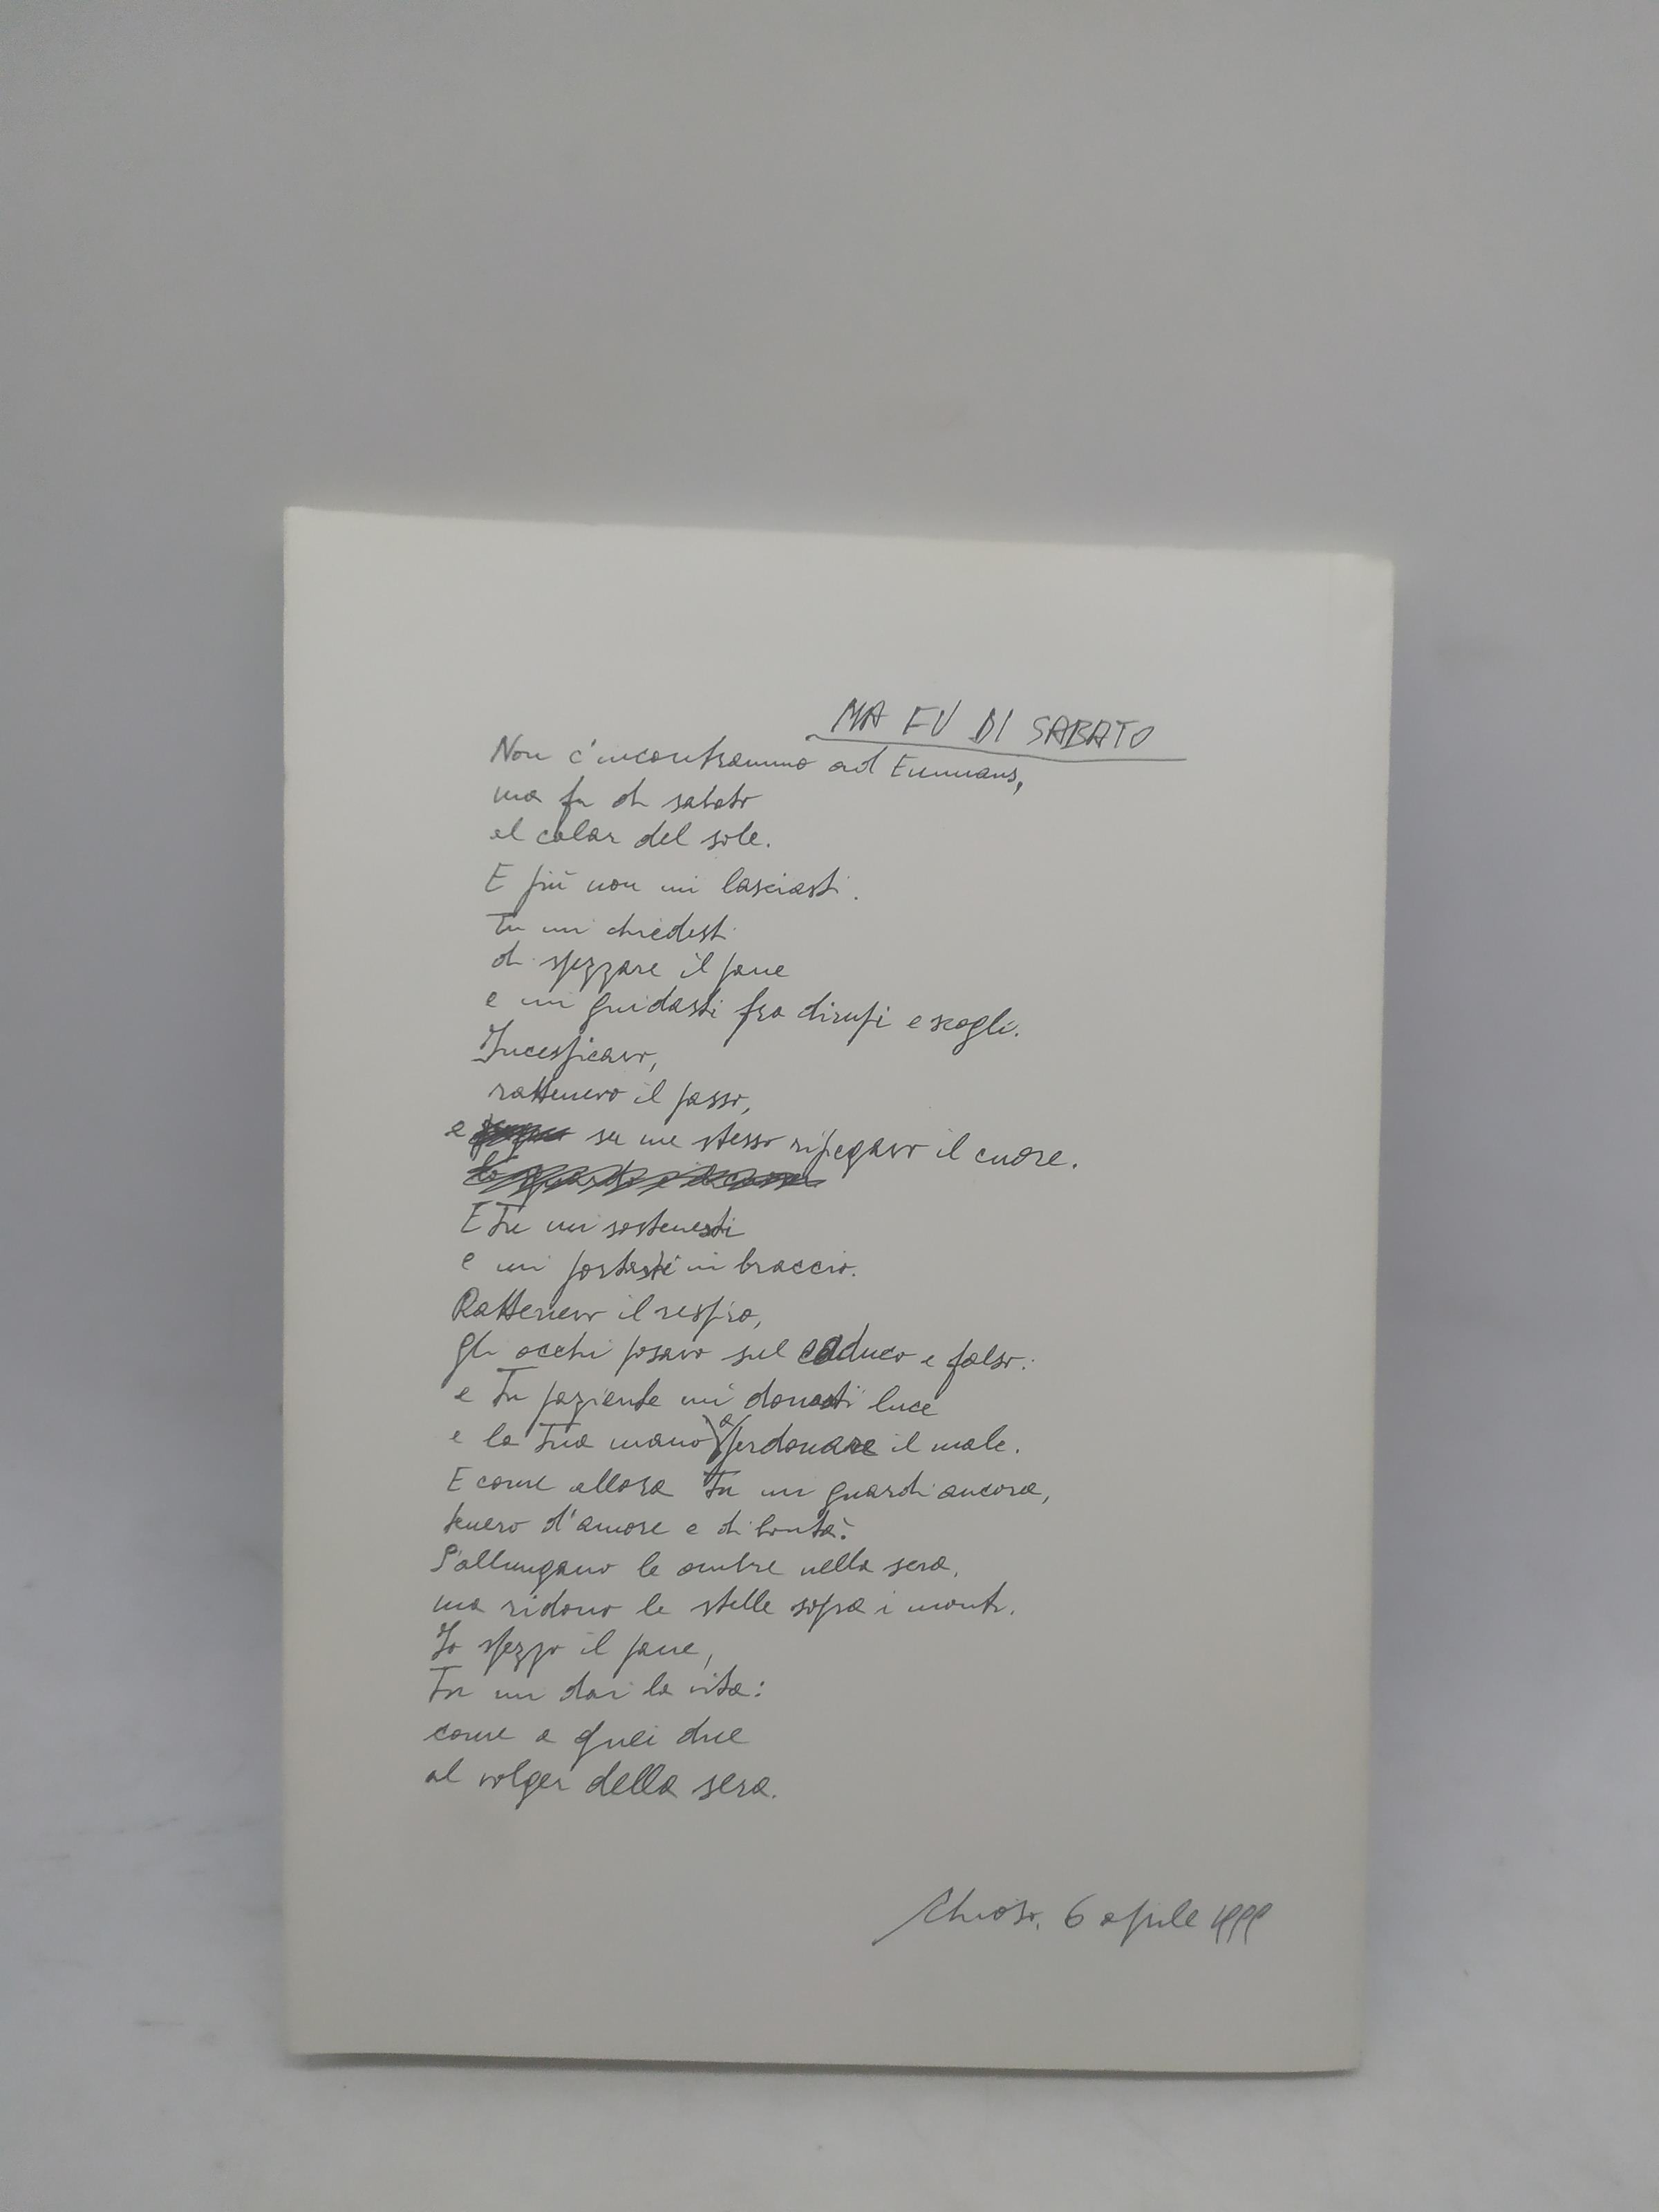 MA FU DI SABATO
Non c'incontrammo ad Emmaus,
ma fu di sabato
al calar del sole.
E più non mi lasciasti.
Tu mi chiedesti
di spezzare il pane
e mi guidasti fra dirupi e scogli.
Incespicavo,
rattenevo il passo,
e su me stesso ripiegavo il cuore.
E Tu mi sostenesti
e mi portasti in braccio.
Rattenevo il respiro,
gli occhi posavo sul caduco e falso:
e Tu paziente mi donasti luce
e la Tua mano a perdonare il male.
E come allora Tu mi guardi ancora,
tenero d'amore e di bontà.
S'allungano le ombre nella sera,
ma ridono le stelle sopra i monti.
Io spezzo il pane,
Tu mi dai la vita:
come a quei due
al volger della sera.
6 aprile 1999